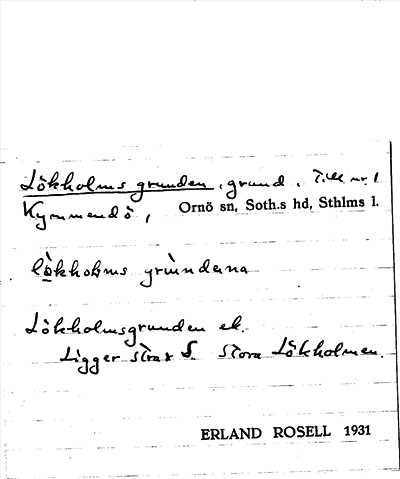 Lökholms grunden, grund. Till nr. 1
Kymmendö, Ornö sn, Soth.s hd, Sthlms l.
lö̀kholms grùndena
Lökholmsgrunden ek.
Ligger strax S. Stora Lökholmen.
ERLAND ROSELL 1931